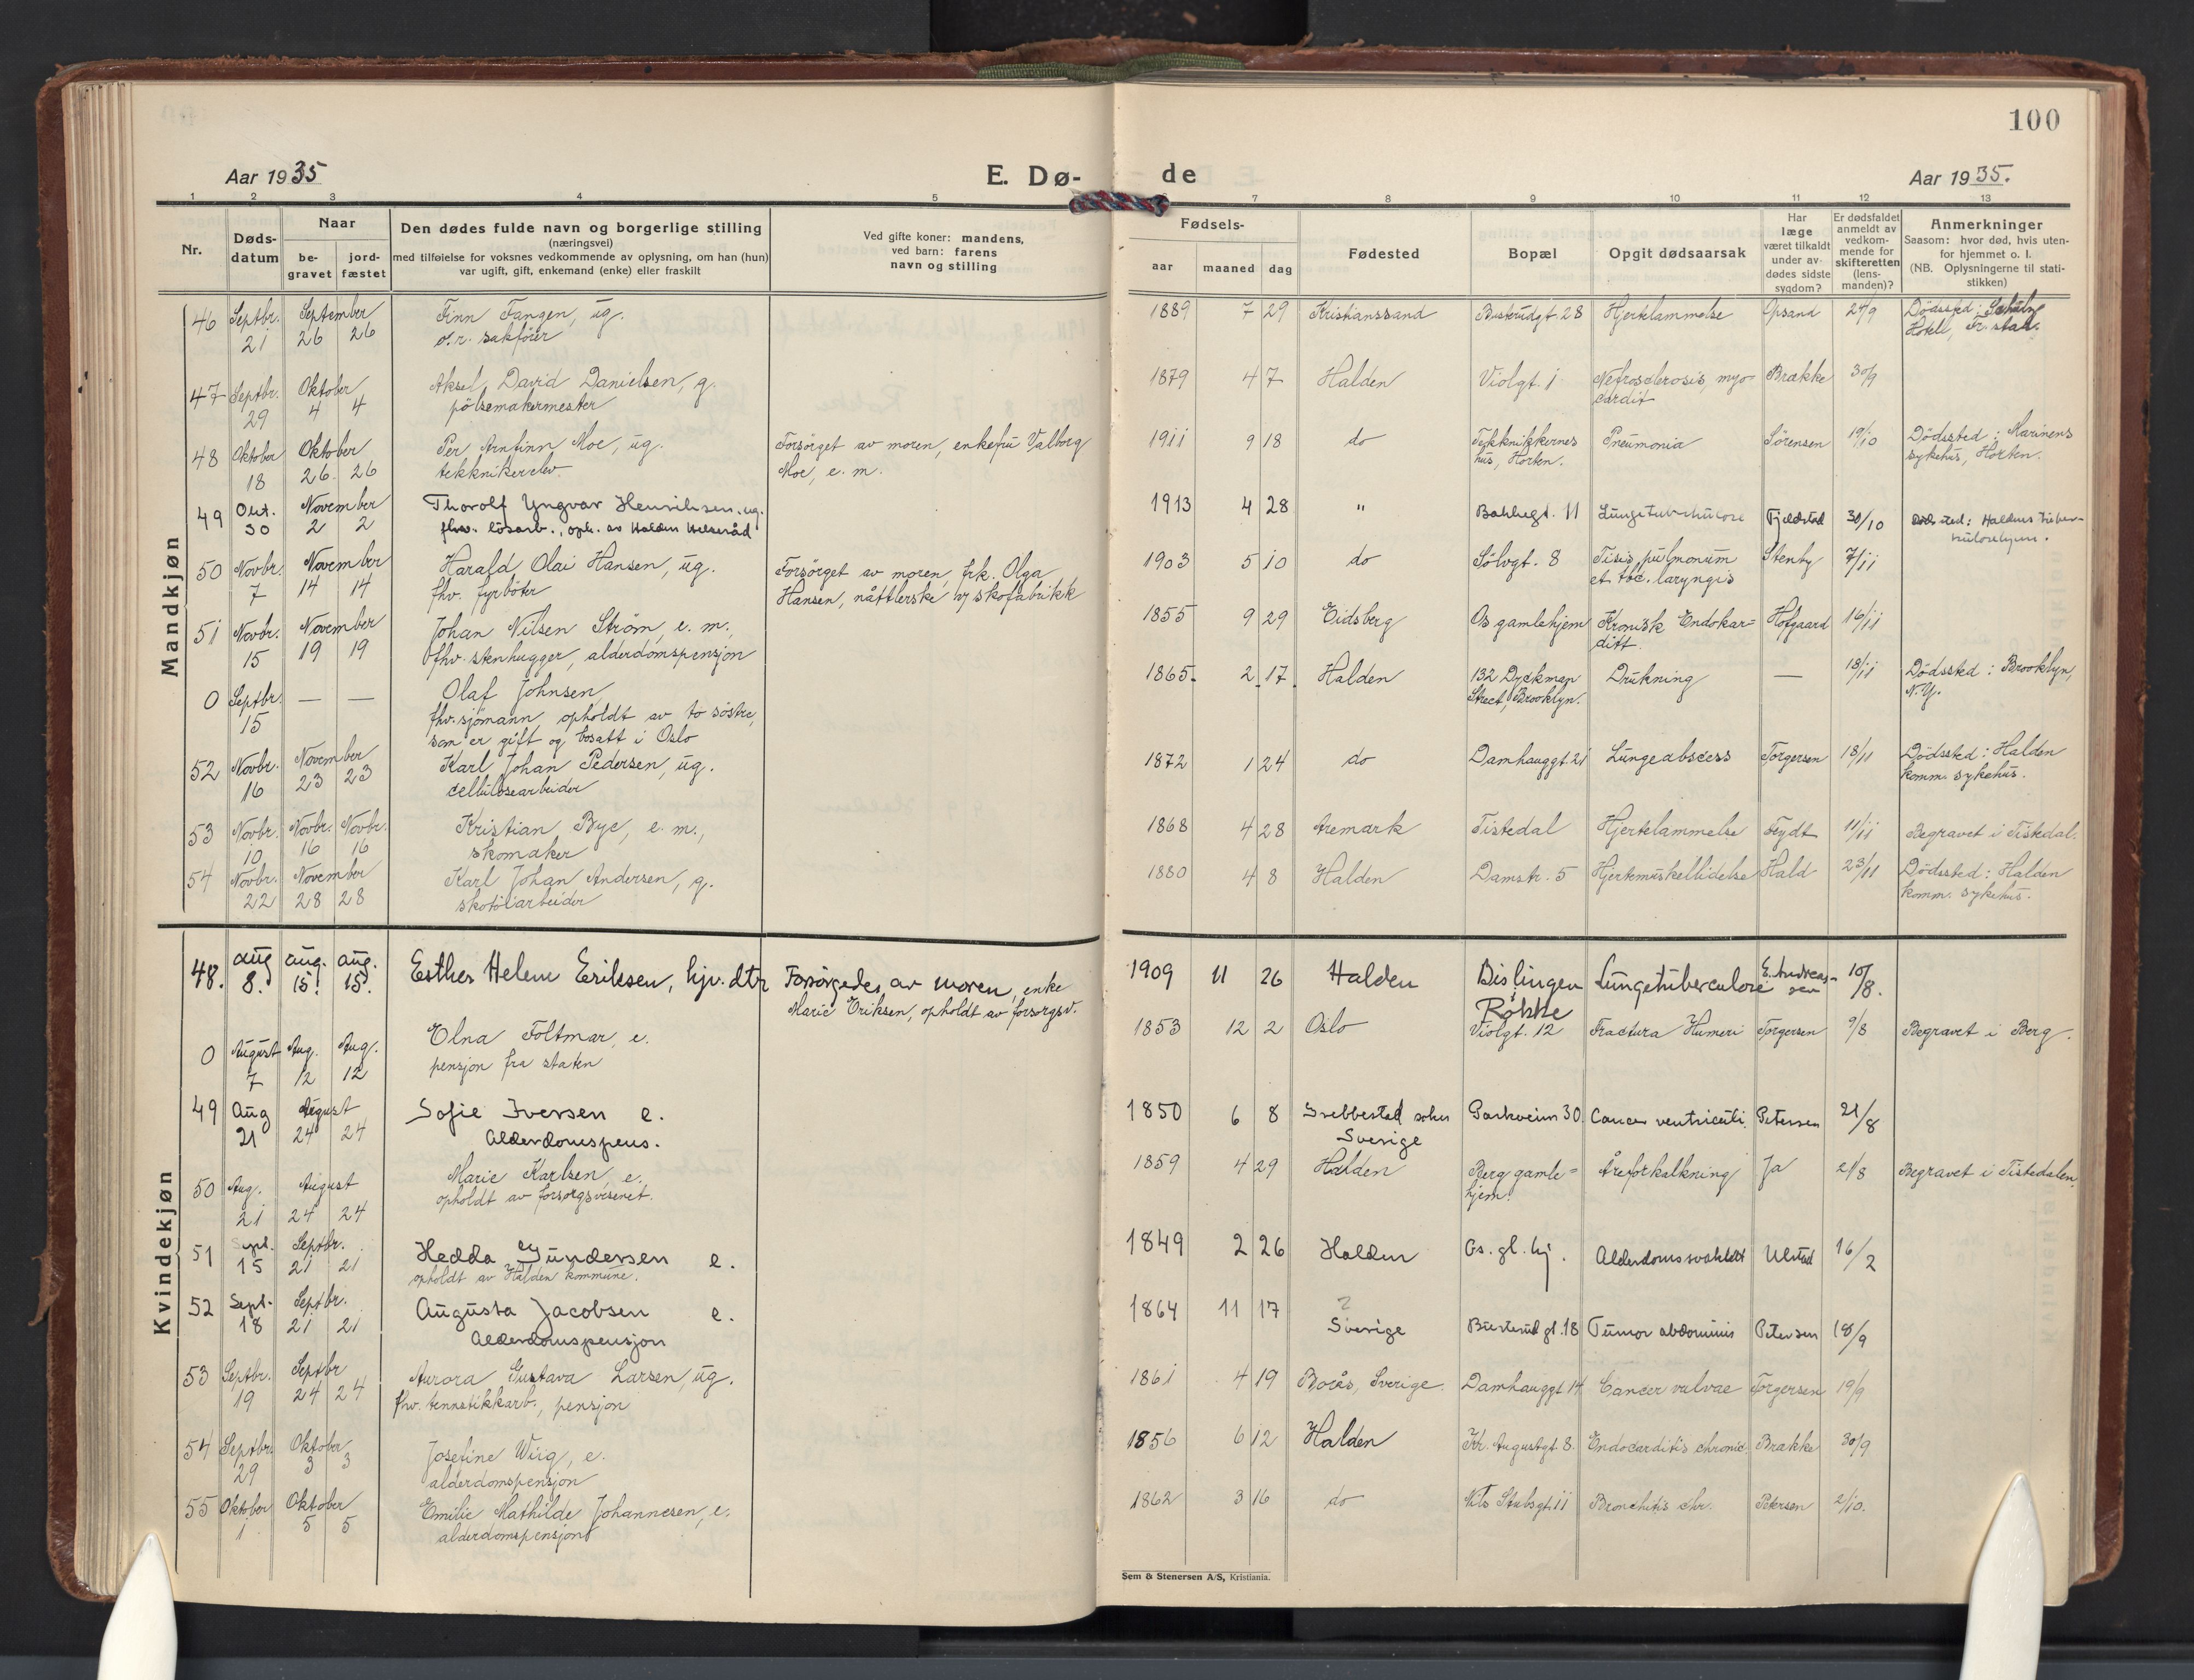 100
Aar 1935
E. Dø-
de
Aar 1935.
1 2 3 4 5 6 7 8 9 10 11 12 13
Nr.
Døds-
datum
Naar
be-
gravet
jord-
fæstet
Den dødes fulde navn og borgerlige stilling
(næringsvei)
med tilføielse for voksnes vedkommende av oplysning, om han (hun)
var ugift, gift, enkemand (enke) eller fraskilt
Ved gifte koner: mandens,
ved barn: farens
navn og stilling
Fødsels-
aar maaned dag
Fødested
Bopæl
Opgit dødsaarsak
Har
læge
været tilkaldt
under av-
dødes sidste
sygdom?
Er dødsfaldet
anmeldt av
vedkom-
mende for
skifteretten
(lens-
manden)?
Anmerkninger
Saasom: hvor død, hvis uten-
for hjemmet o. l.
(NB. Oplysningerne til stati-
stikken)
Mandkjøn
46 Septbr. September Finn Fangen, ug. 1889 7 29 Kristianssand Buskrudgt. 28 Hjertelammelse Opsand 24/9 Dødssted: Schulz
21 26 26 o.r. sakfører Hotell, Fr.stad.
47 Septbr. Oktober Aksel David Danielsen, g. 1879 4 7 Halden Violgt. 1 Nefrosclerosis, myo- Brække 30/9
29 4 4 pølsemakermester cardit
48 Oktober Oktober Per Arnfinn Moe, ug. Forsørget av moren, enkefru Valborg 1911 9 18 do Tekknikkernes Pneumonia Sørensen 19/10 Dødssted: Marinens
18 26 26 tekknikerelev Moe, e. m. hus, Horten. sykehus, Horten.
49 Okt. November Thorolf Yngvar Henriksen. ug. 1913 4 28 " Bakkegt. 11 Lungetuberkulose Fjeldstad 30/10 Dødssted: Haldens tuber-
30 2 2 fhv. løsarb., oph. av Halden Helseråd kulosehjem.
50 Novbr. November Harald Olai Hansen, ug. Forsørget av moren, frk. Olga 1903 5 10 do Sølvgt. 8 Tisis pulmonum Stenby 7/11
7 14 14 fhv. fyrbøter Hansen, nåtlerske v/ skofabrikk et tbc. laryngis
51 Novbr. November Johan Nilsen Strøm, e. m., 1855 9 29 Eidsberg Os gamlehjem Kronisk Endokar- Hofgaard 16/11
15 19 19 fhv. stenhugger, alderdomspensjon ditt.
0 Septbr. — — Olaf Johnsen, 1865 2 17 Halden 132 Dyckman Drukning — 18/11 Dødssted: Brooklyn,
15 fhv. sjømann, opholdt av to søstre, Street, Brooklyn. N.Y.
som er gift og bosatt i Oslo
52 Novbr. November Karl Johan Pedersen, ug. 1872 1 24 do Damhauggt. 21 Lungeabscess Torgersen 18/11 Dødssted: Halden
16 23 23 cellulosearbeider komm. sykehus.
53 Novbr. Novbr. Novbr. Kristian Bye, e. m., 1868 4 28 Aremark Tistedal Hjertelammelse Feydt 11/11 Begravet i Tistedal.
10 16 16 skomaker
54 Novbr. November Karl Johan Andersen, g. 1880 4 8 Halden Damstr. 5 Hjertemuskellidelse Hald 23/11 Dødssted: Halden
22 28 28 skotøiarbeider komm. sykehus.
Kvindekjøn
48. aug aug. aug. Esther Helene Eriksen, hjv. dtr Forsørgedes av moren, enke 1909 11 26 Halden Bislingen Lungetuberculose E. Andreas- 10/8.
8. 15. 15. Marie Eriksen, opholdt av forsorgsv. Rokke sen
0 August Aug. Aug. Elna Foltmar, e. 1853 12 2 Oslo Violgt. 12 Fractura Humeri Torgersen 9/8 Begravet i Berg.
7 12 12 pensjon fra staten
49 Aug August Sofie Iversen e. 1850 6 8 sokn Parkveien 30 Cancer ventriculi Petersen 21/8
21 24 24 Alderdomspens. Sverige
50 Aug. August Marie Karlsen, e. 1859 4 29 Halden Berg gamle- Åreforkalkning Ja 21/8 Begravet i Tistedalen.
21 24 24 opholdt av forsorgsvesenet. hjem.
51 Sept. Septbr. Hedda Gundersen e. 1849 2 26 Halden Os. gl. hj. Alderdomssvakhet Ulstad 16/2
15 21 21 opholdt av Halden kommune.
52 Sept. Septbr. Augusta Jacobsen e. 1864 11 17 ? Busterud gt. 18 Tumor abdominis Petersen 18/9
18 21 21 Alderdomspensjon Sverige
53 Septbr. Septbr Aurora Gustava Larsen, ug. 1861 4 19 Borås, Sverige. Damhauggt 14 Cancer vulvae Torgersen 19/9
19 24 24 fhv. tennstikkarb., pensjon
54 Septbr. Oktober Josefine Wiig, e. 1856 6 12 Halden Kr. Augustgt. 8. Endocarditis chronic Brække 30/9
29 3 3 alderdomspensjon
55 Oktober Oktober Emilie Mathilde Johannesen, e. 1862 3 16 do Nils Stubsgt. 11 Bronchitis chr. Petersen 2/10.
1 5 5 alderdomspensjon
Sem & Stenersen A/S, Kristiania.